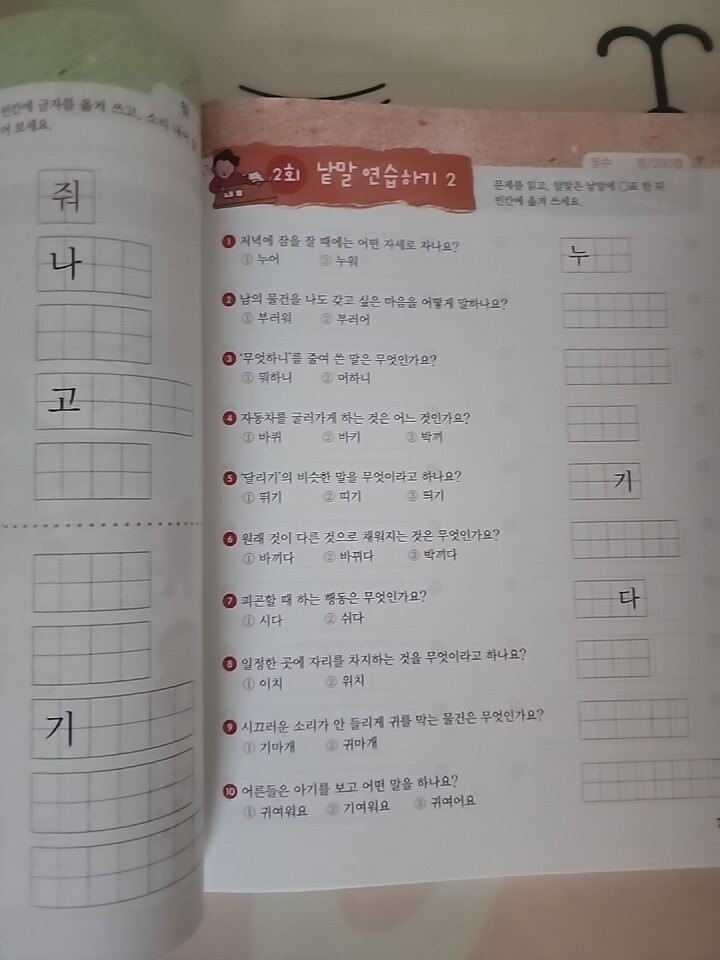 빈칸에 글자를 옮겨 쓰고, 소리 내어
어 보세요.
줘
나
고
기
2회 낱말 연습하기 2
점수 점/200점
문제를 읽고, 알맞은 낱말에 ○표 한 뒤
빈칸에 옮겨 쓰세요.
1 저녁에 잠을 잘 때에는 어떤 자세로 자나요?
① 누어 ② 누워
누
2 남의 물건을 나도 갖고 싶은 마음을 어떻게 말하나요?
① 부러워 ② 부러어
3 '무엇하니'를 줄여 쓴 말은 무엇인가요?
① 뭐하니 ② 머하니
4 자동차를 굴러가게 하는 것은 어느 것인가요?
① 바퀴 ② 바키 ③ 박끼
5 '달리기'의 비슷한 말을 무엇이라고 하나요?
① 뛰기 ② 띠기 ③ 띄기
기
6 원래 것이 다른 것으로 채워지는 것은 무엇인가요?
① 바끼다 ② 바뀌다 ③ 박끼다
7 피곤할 때 하는 행동은 무엇인가요?
① 시다 ② 쉬다
다
8 일정한 곳에 자리를 차지하는 것을 무엇이라고 하나요?
① 이치 ② 위치
9 시끄러운 소리가 안 들리게 귀를 막는 물건은 무엇인가요?
① 기마개 ② 귀마개
10 어른들은 아기를 보고 어떤 말을 하나요?
① 귀여워요 ② 기여워요 ③ 귀여어요